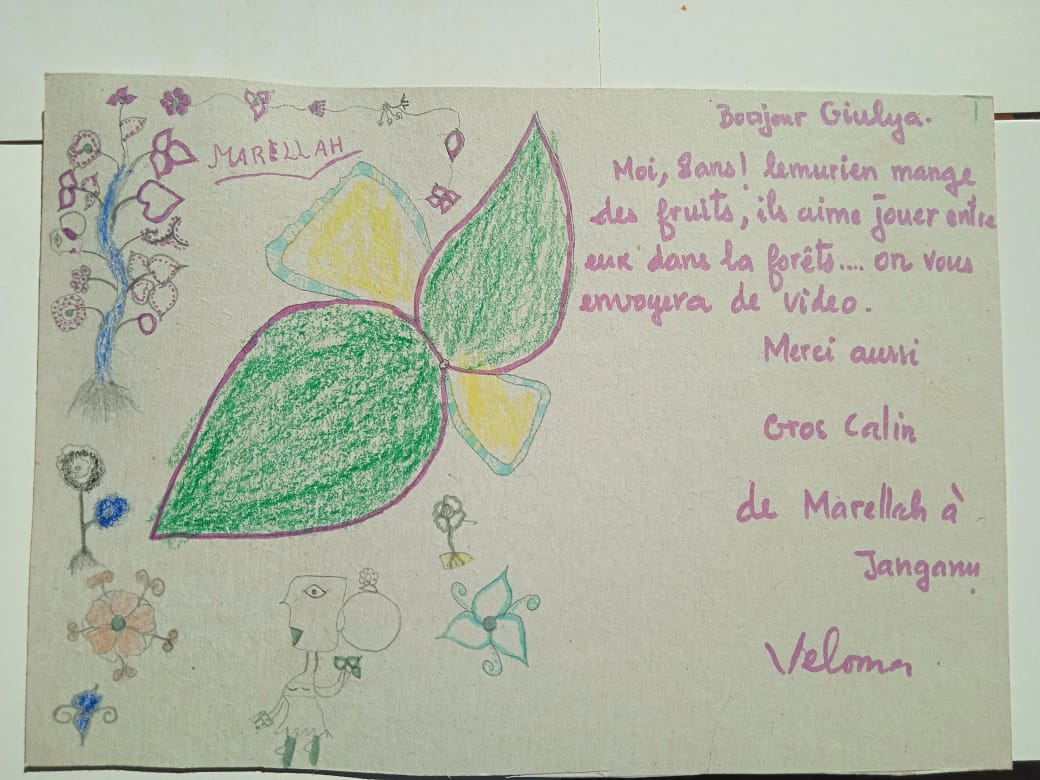 MARELLAH
Bonjour Giulya.
Moi, 8ans! lemurien mange
des fruits, ils aime jouer entre
eux dans la forêts.... on vous
envoyera de video.
Merci aussi
Gros Calin
de Marellah à